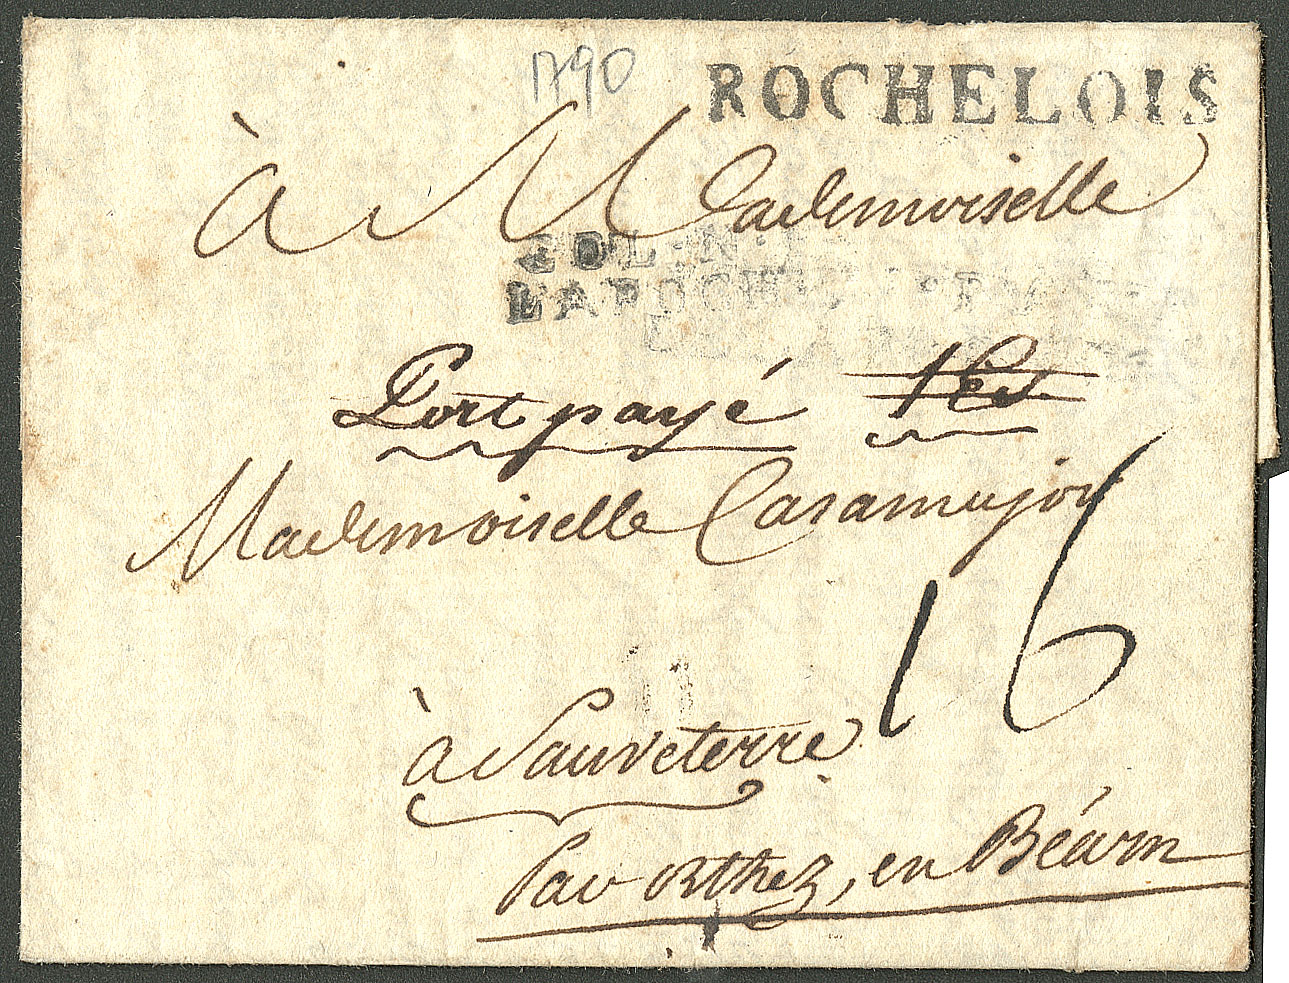 1790
ROCHELOIS
à Mademoiselle
COL·N·
LAROCH
Port payé
Mademoiselle Casamajor
16
à Sauveterre
Par Orthez, en Béarn